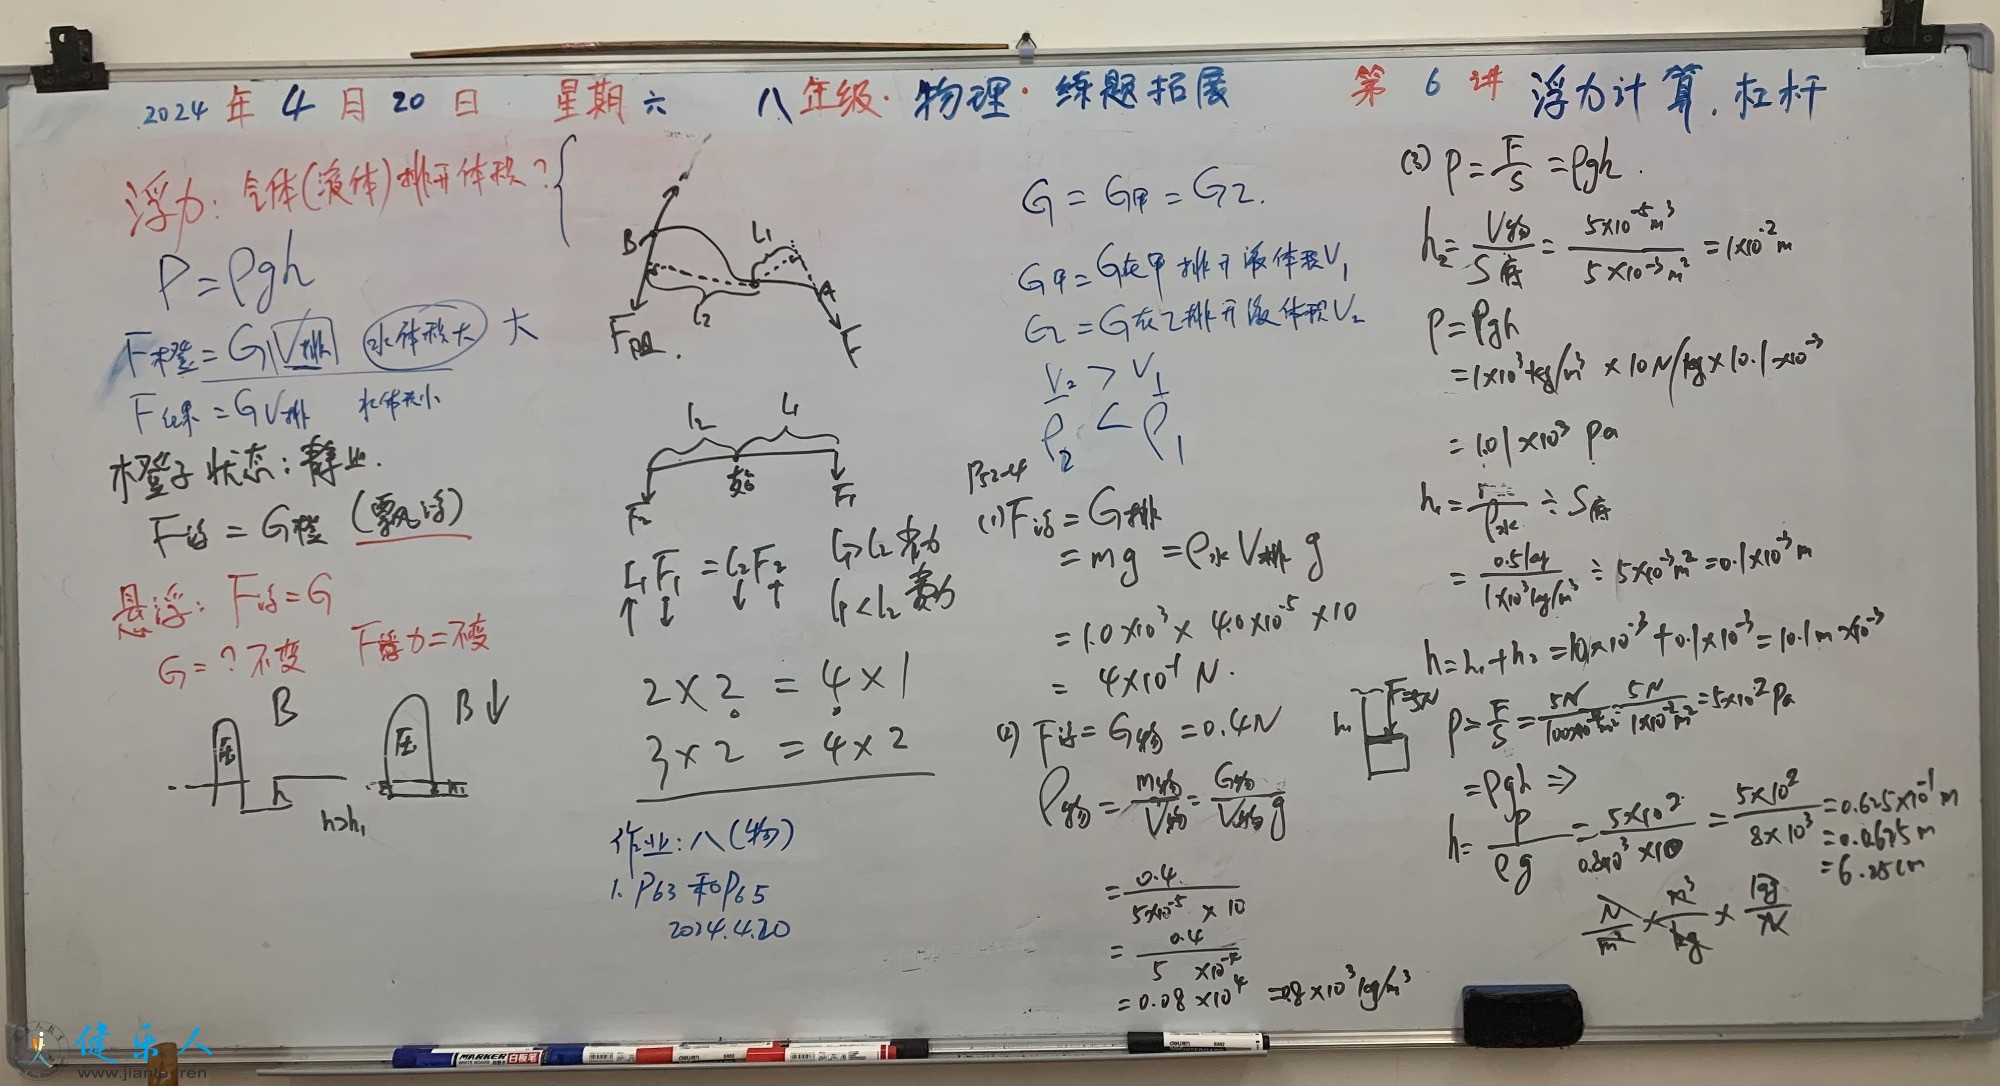 2024年4月20日 星期六 八年级·物理·练题拓展 第6讲 浮力计算.杠杆
浮力:气体(液体)排开体积?
P=ρgh
F木凳=G|V排| 水体积大 大
F红果=GV排 水体积小
木凳子状态:静止.
F浮=G凳 (飘浮)
悬浮:F浮=G
G=?不变 F浮力=不变
B
B↓
h
h>h₁
B
L1
L2
A
F阻.
F
L2
L1
F2
F1
L1F1=L2F2
↑ ↓ ↓ ↑
L1>L2省力
L1<L2费力
2×2=4×1
3×2=4×2
作业:八(物)
1. P63和P65
2024.4.20
G=G甲=G乙.
G甲=G在甲排开液体积V1
G乙=G在乙排开液体积V2
V2>V1
ρ2<ρ1
P52-4
(1)F浮=G排
=mg=ρ水V排g
=1.0×10³×4.0×10⁻⁵×10
=4×10⁻¹N.
(2)F浮=G物=0.4N
ρ物=m物/V物=G物/V物g
=0.4/5×10⁻⁵×10
=0.4/5×10⁻⁴
=0.08×10⁴=0.8×10³kg/m³
(3)P=F/S=ρgh.
h2=V物/S底=5×10⁻⁵m³/5×10⁻³m²=1×10⁻²m
P=ρgh
=1×10³kg/m³×10N/kg×10.1×10⁻³
=1.01×10³Pa
h1= /ρ水÷S底
=0.5kg/1×10³kg/m³÷5×10⁻³m²=0.1×10⁻³m
h=h1+h2=10×10⁻³+0.1×10⁻³=10.1m×10⁻³
F=5N
h
P=F/S=5N/100×10⁻⁴m²=5N/1×10⁻²m²=5×10²Pa
=ρgh⇒
h=P/ρg=5×10²/0.8×10³×10=5×10²/8×10³=0.625×10⁻¹m
=0.0625m
=6.25cm
N/m²×m³/kg×kg/N
健乐人
www.jianle.ren
MARKER 白板笔